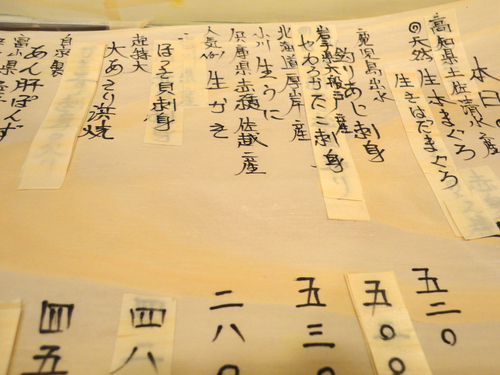 本日
高知県土佐清水産
◎天然 生本まぐろ
生きはだまぐろ
鹿児島出水
釣りあじ刺身
岩手県大船戸産
やわらかたこ刺身
北海道厚岸産
小川 生うに
兵庫県赤穂佐越産
人気No1 生かき
ほっき貝刺身
超特大
大あさり浜焼
自家製
あん肝ぽんず
富山県
五二〇
五〇〇
五三〇
二八
四八
四五